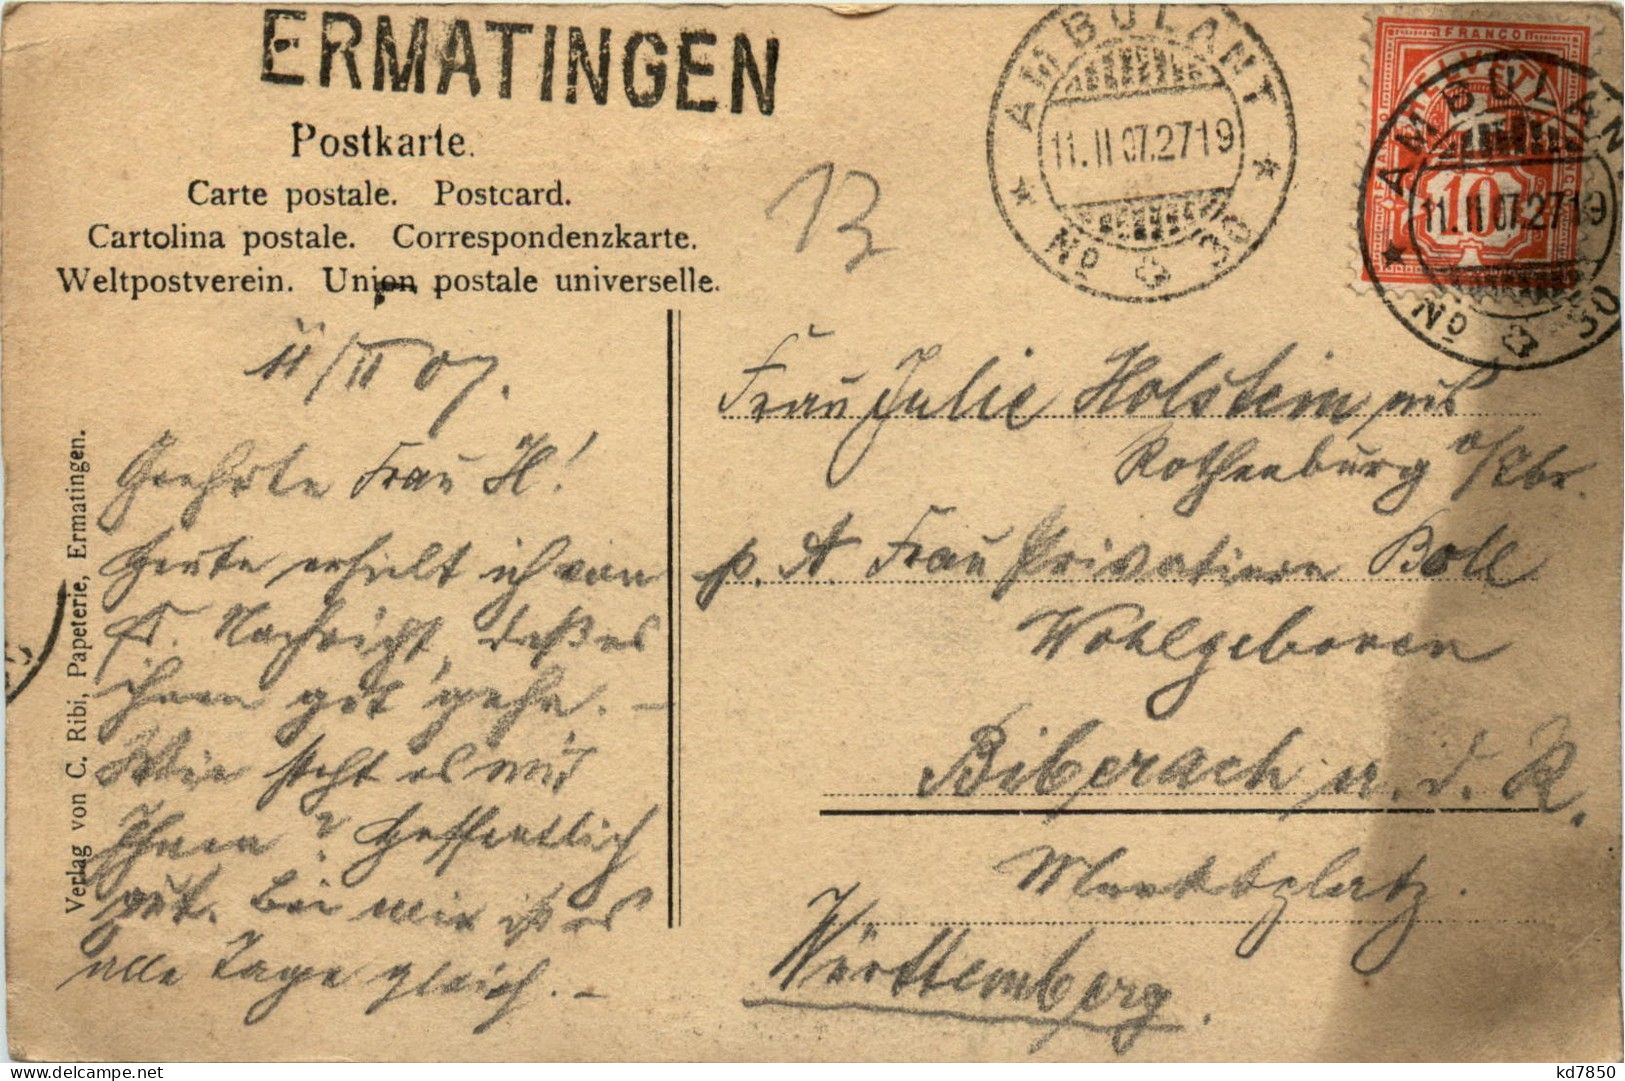 ERMATINGEN
Postkarte.
Carte postale. Postcard.
Cartolina postale. Correspondenzkarte.
Weltpostverein. Union postale universelle.
AMBULANT
11.II.07.2719
No 30
FRANCO
HELVETIA
10
AMBULANT
11.II.07.2719
No 30
13
11/II 07.
Geehrte Frau H!
Heute erhielt ich von
Nachricht, daß es
ihnen gut gehe. –
Wie steht es mit
Ihnen? Hoffentlich
gut. Bei mir ist es
alle Tage gleich. –
Frau Julie Holstein aus
Rothenburg a/Nbr.
p. A. Frau Privatiere Boll
Wohlgeboren
Biberach a. d. R.
Marktplatz.
Württemberg.
Verlag von C. Ribi, Papeterie, Ermatingen.
kd7850